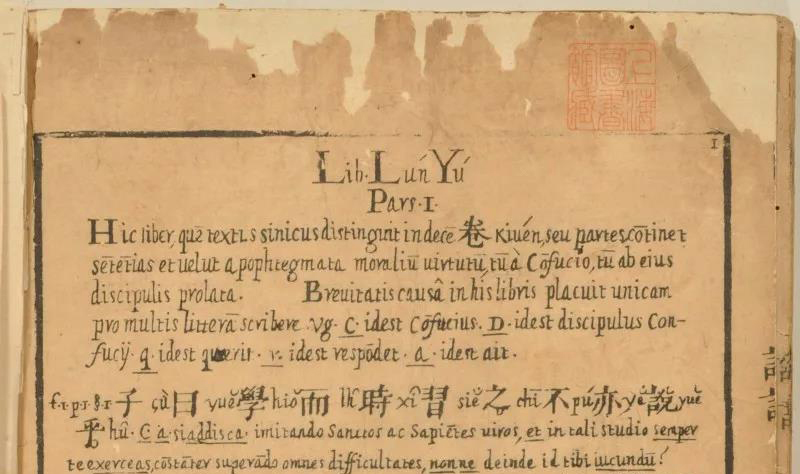 1
Lib. Lún Yú
Pars. I.
Hic liber, quē textus sinicus distinguit in decē 卷 Kiuén, seu partes, cōtinet
sētētias et uelut apophtegmata moraliū uirtutū, tū à Cōfucio, tū ab eius
discipulis prolata. Breuitatis causâ in his libris placuit unicam
pro multis litterā scribere vg. C. idest Cōfucius. D. idest discipulus Con-
fucij. q. idest quærit. r. idest respōdet. a. idest ait.
f.1.p.1.§.1 子 çù 曰 yuĕ 學 hiŏ 而 lh̑ 時 xî 習 siĕ 之 chī 不 pú 亦 yĕ 說 yuĕ
乎 hû. C. a. siaddisca. imitando Sanctos ac Sapiētes uiros, et in tali studio semper
te exerceas, cōstāter superādo omnes difficultates, nonne deinde id tibi iucundū?
論
語